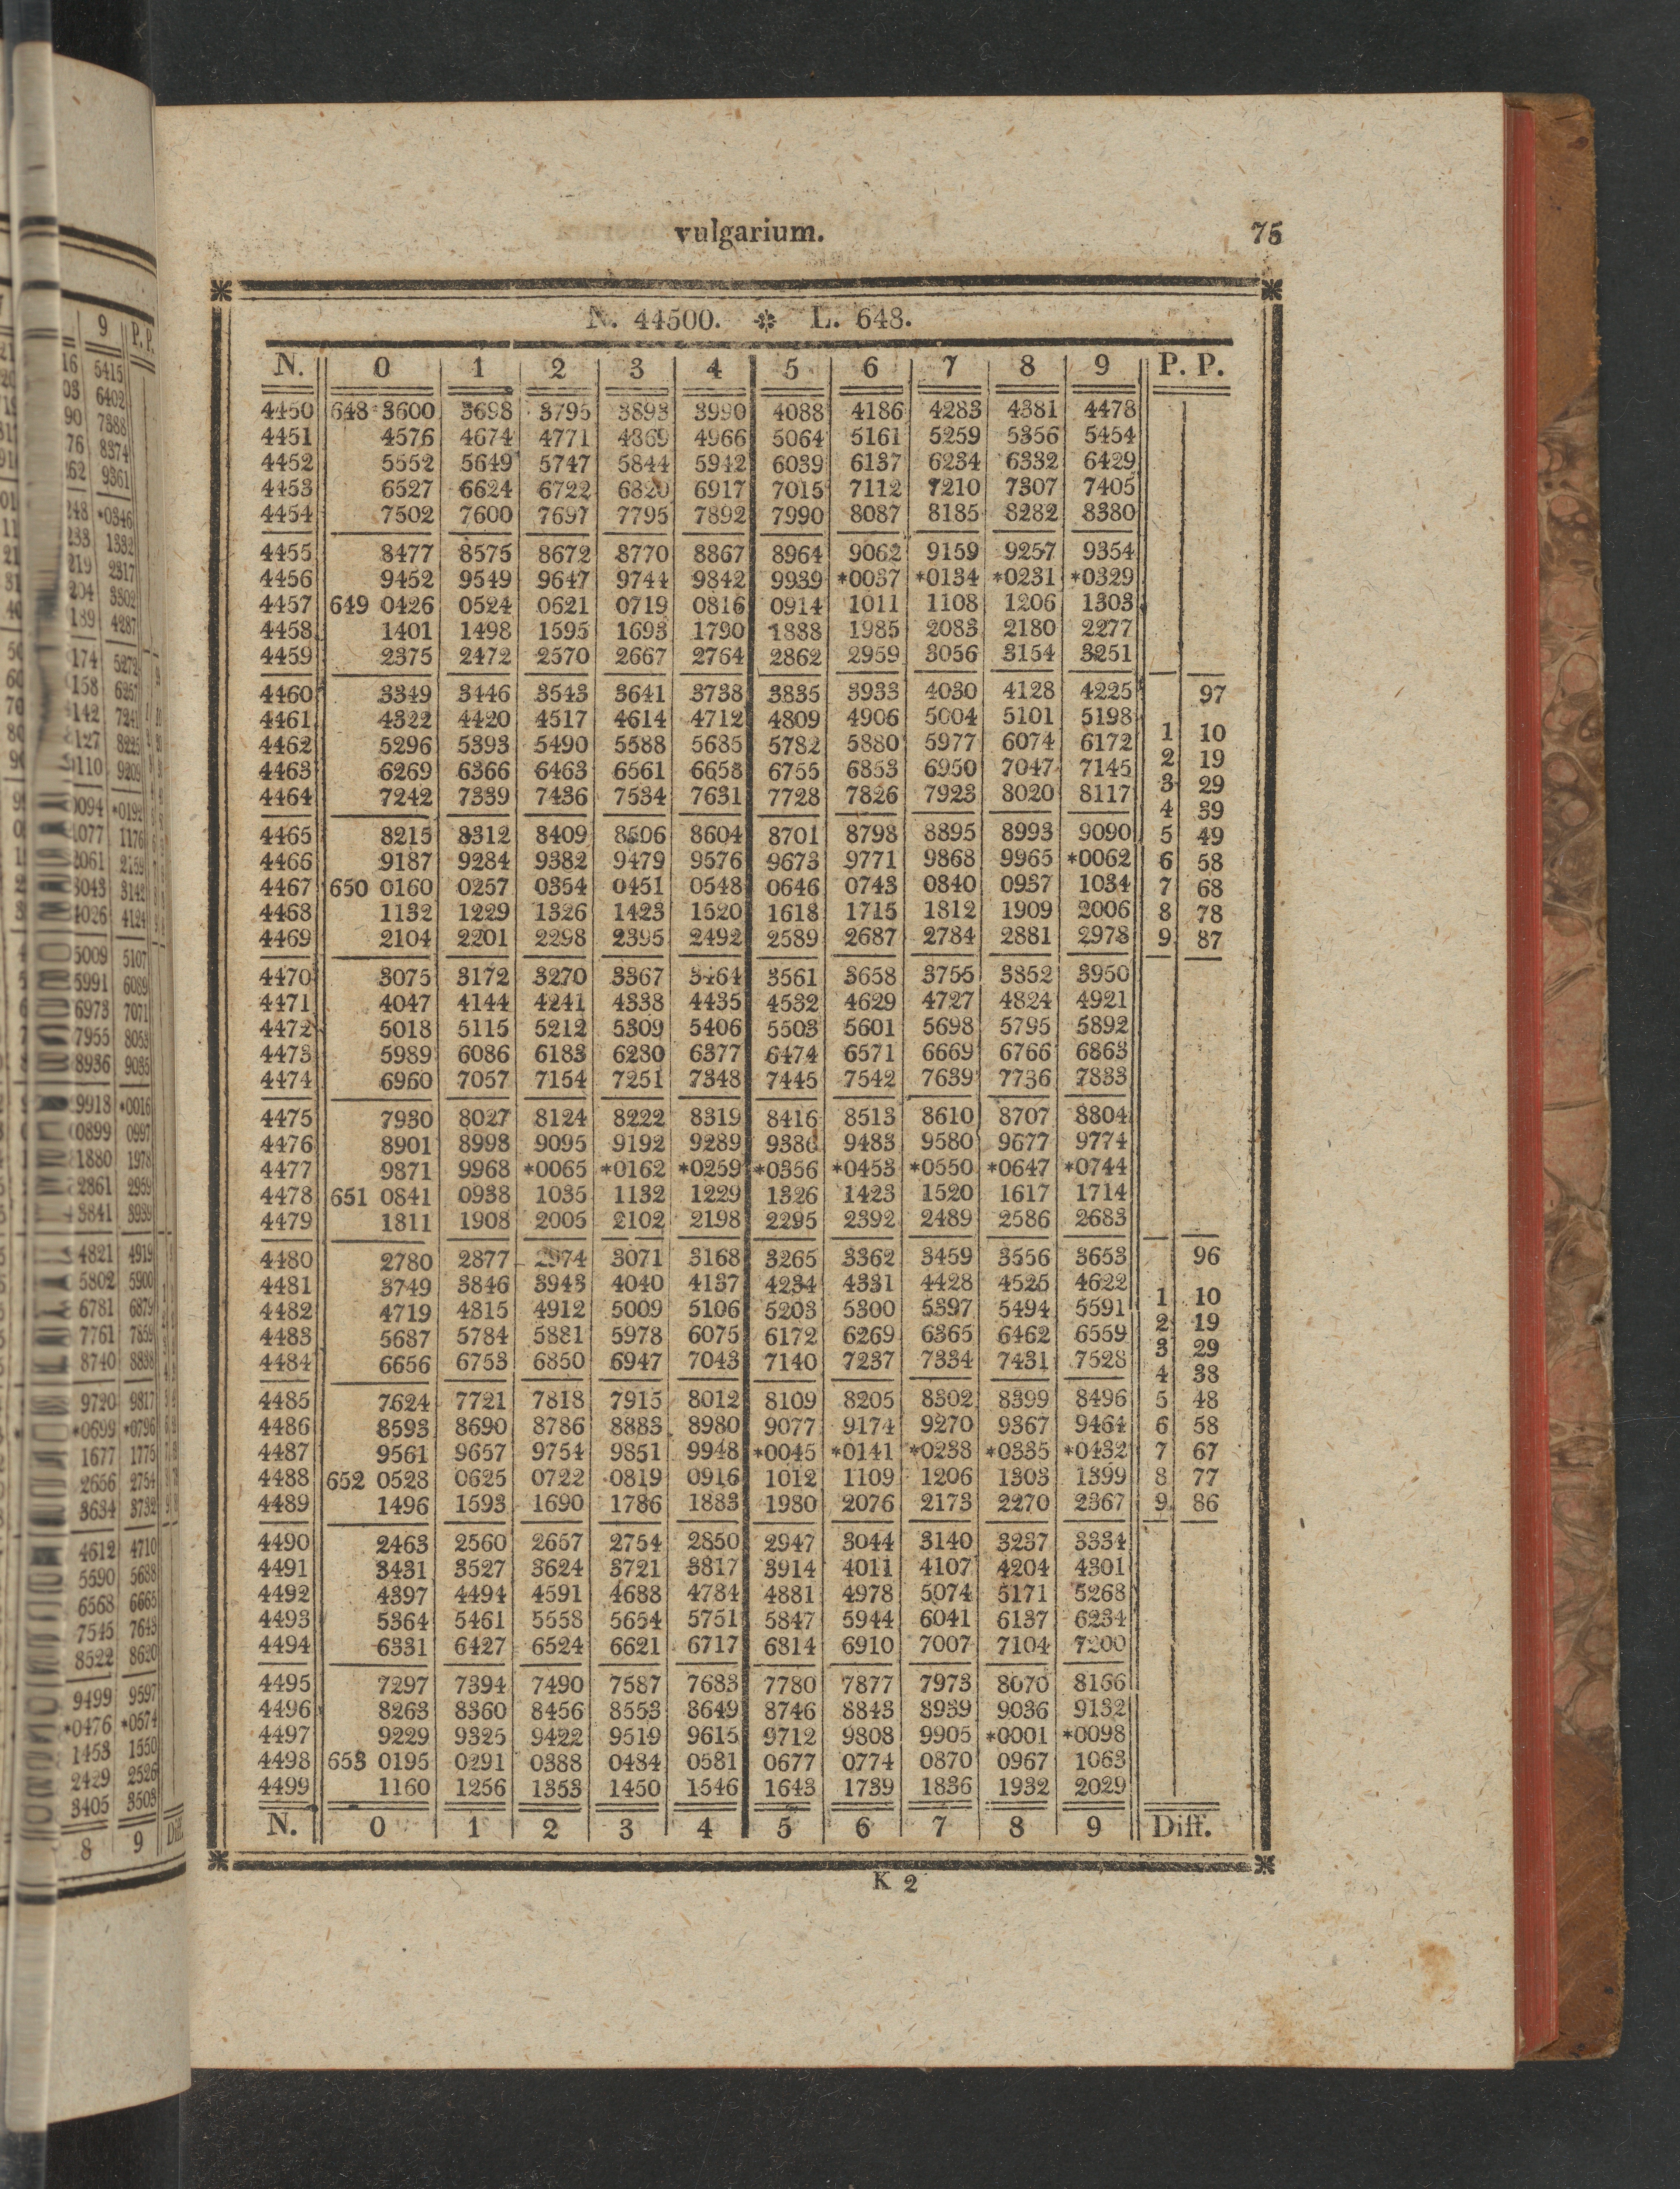 vulgarium. 75
N. 44500. L. 648.
N. 0 1 2 3 4 5 6 7 8 9 P. P.
4450 648 3600 3698 3795 3893 3990 4088 4186 4283 4381 4478
4451 4576 4674 4771 4869 4966 5064 5161 5259 5356 5454
4452 5552 5649 5747 5844 5942 6039 6137 6234 6332 6429
4453 6527 6624 6722 6820 6917 7015 7112 7210 7307 7405
4454 7502 7600 7697 7795 7892 7990 8087 8185 8282 8380
4455 8477 8575 8672 8770 8867 8964 9062 9159 9257 9354
4456 9452 9549 9647 9744 9842 9939 *0037 *0134 *0231 *0329
4457 649 0426 0524 0621 0719 0816 0914 1011 1108 1206 1303
4458 1401 1498 1595 1693 1790 1888 1985 2083 2180 2277
4459 2375 2472 2570 2667 2764 2862 2959 3056 3154 3251
4460 3349 3446 3543 3641 3738 3835 3933 4030 4128 4225 97
4461 4322 4420 4517 4614 4712 4809 4906 5004 5101 5198
4462 5296 5393 5490 5588 5685 5782 5880 5977 6074 6172 1 10
4463 6269 6366 6463 6561 6658 6755 6853 6950 7047 7145 2 19
4464 7242 7339 7436 7534 7631 7728 7826 7923 8020 8117 3 29
4 39
4465 8215 8312 8409 8506 8604 8701 8798 8895 8993 9090 5 49
4466 9187 9284 9382 9479 9576 9673 9771 9868 9965 *0062 6 58
4467 650 0160 0257 0354 0451 0548 0646 0743 0840 0937 1034 7 68
4468 1132 1229 1326 1423 1520 1618 1715 1812 1909 2006 8 78
4469 2104 2201 2298 2395 2492 2589 2687 2784 2881 2978 9 87
4470 3075 3172 3270 3367 3464 3561 3658 3755 3852 3950
4471 4047 4144 4241 4338 4435 4532 4629 4727 4824 4921
4472 5018 5115 5212 5309 5406 5503 5601 5698 5795 5892
4473 5989 6086 6183 6280 6377 6474 6571 6669 6766 6863
4474 6960 7057 7154 7251 7348 7445 7542 7639 7736 7833
4475 7930 8027 8124 8222 8319 8416 8513 8610 8707 8804
4476 8901 8998 9095 9192 9289 9386 9483 9580 9677 9774
4477 9871 9968 *0065 *0162 *0259 *0356 *0453 *0550 *0647 *0744
4478 651 0841 0938 1035 1132 1229 1326 1423 1520 1617 1714
4479 1811 1908 2005 2102 2198 2295 2392 2489 2586 2683
4480 2780 2877 2974 3071 3168 3265 3362 3459 3556 3653 96
4481 3749 3846 3943 4040 4137 4234 4331 4428 4525 4622
4482 4719 4815 4912 5009 5106 5203 5300 5397 5494 5591 1 10
4483 5687 5784 5881 5978 6075 6172 6269 6365 6462 6559 2 19
4484 6656 6753 6850 6947 7043 7140 7237 7334 7431 7528 3 29
4 38
4485 7624 7721 7818 7915 8012 8109 8205 8302 8399 8496 5 48
4486 8593 8690 8786 8883 8980 9077 9174 9270 9367 9464 6 58
4487 9561 9657 9754 9851 9948 *0045 *0141 *0238 *0335 *0432 7 67
4488 652 0528 0625 0722 0819 0916 1012 1109 1206 1303 1399 8 77
4489 1496 1593 1690 1786 1883 1980 2076 2173 2270 2367 9 86
4490 2463 2560 2657 2754 2850 2947 3044 3140 3237 3334
4491 3431 3527 3624 3721 3817 3914 4011 4107 4204 4301
4492 4397 4494 4591 4688 4784 4881 4978 5074 5171 5268
4493 5364 5461 5558 5654 5751 5847 5944 6041 6137 6234
4494 6331 6427 6524 6621 6717 6814 6910 7007 7104 7200
4495 7297 7394 7490 7587 7683 7780 7877 7973 8070 8166
4496 8263 8360 8456 8553 8649 8746 8843 8939 9036 9132
4497 9229 9325 9422 9519 9615 9712 9808 9905 *0001 *0098
4498 653 0195 0291 0388 0484 0581 0677 0774 0870 0967 1063
4499 1160 1256 1353 1450 1546 1643 1739 1836 1932 2029
N. 0 1 2 3 4 5 6 7 8 9 Diff.
K 2